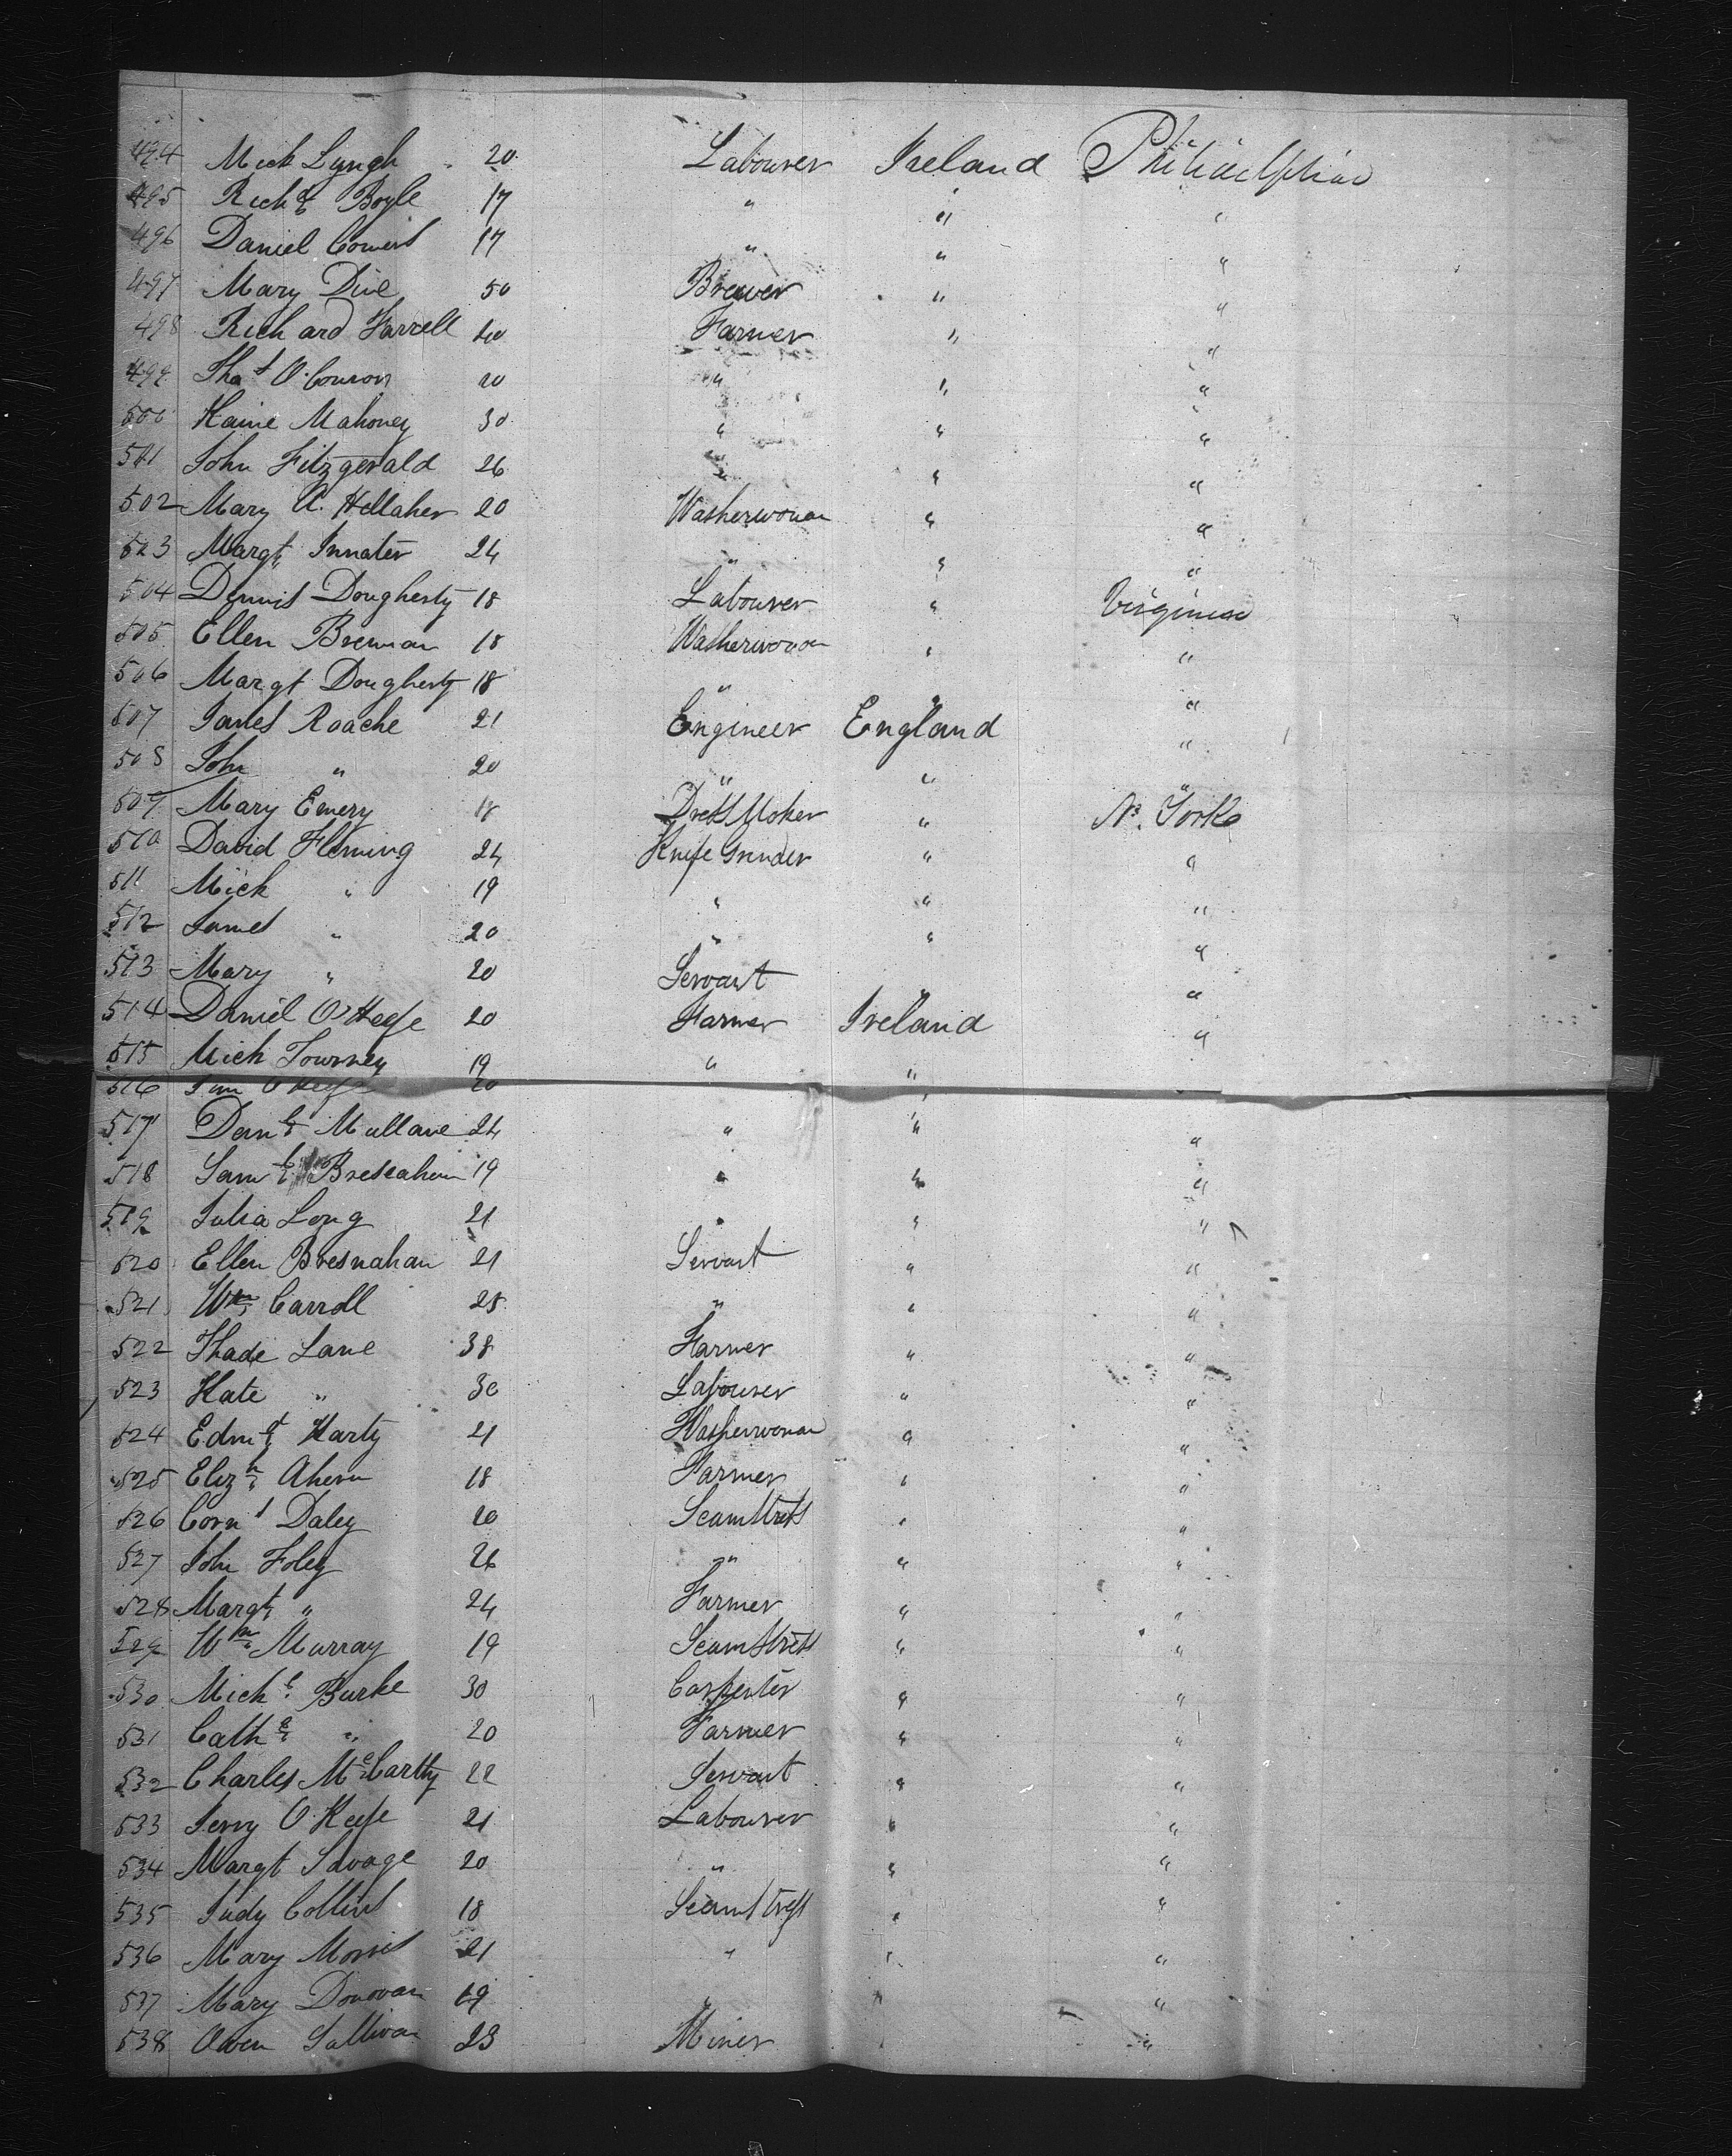 494 Mick Lyngh 20 Labourer Ireland Philadelphia
495 Richd Boyle 17 " " "
496 Daniel 17 " " "
497 Mary Dive 50 Brewer " "
498 Richard Farrell 40 Farmer " "
499 O'Conron 20 " " "
500 Mahoney 30 " " "
501 John Fitzgerald 26 " " "
502 Mary A. Hellaher 20 Washerwoman " "
503 Margt 24 " " "
504 Dennis Dougherty 18 Labourer " Virginia
505 Ellen Brennan 18 Washerwoman " "
506 Margt Dougherty 18 " " "
507 James Roache 21 Engineer England "
508 John " 20 " " "
509 Mary Emery 18 Dress Maker " N. York
510 David Fleming 24 Knife Grinder " "
511 Mick " 19 " " "
512 James " 20 " " "
513 Mary " 20 Servant " "
514 Daniel O'Keefe 20 Farmer Ireland "
515 Mich Tourney 19 " "
516 O'Keefe 20 "
517 Danl Mullane 24 " " "
518 Saml Bresnahan 19 " " "
519 Julia Long 21 " " "
520 Ellen Bresnahan 21 Servant " "
521 Wm Carroll 28 " " "
522 Thade Lane 38 Farmer " "
523 Kate " 30 Labourer " "
524 Edmd Harty 21 Washerwoman " "
525 Elizh Ahern 18 Farmer " "
526 Corns Daley 20 Seamstress " "
527 John Foley 26 " " "
528 Margt " 24 Farmer " "
529 Wm Murray 19 Seamstress " "
530 Michl Burke 30 Carpenter " "
531 Cathe " 20 Farmer " "
532 Charles McCarthy 22 Servant " "
533 Jerry O'Keefe 21 Labourer " "
534 Margt Savage 20 " " "
535 Judy Collins 18 Seamstress " "
536 Mary Morris 21 " " "
537 Mary Donovan 19 " " "
538 Owen Sullivan 23 Miner " "